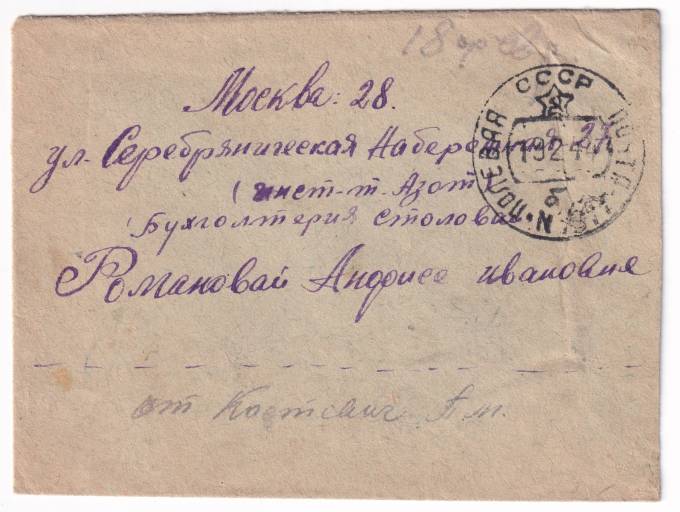 Москва: 28.
ул. Серебряническая Набережная 27
(инст-т. Азот)
Бухголтерия столовай
Романовай Анфиса ивановня
от Костевич А. М.
СССР
ПОЛЕВАЯ ПОЧТА
19 2 44